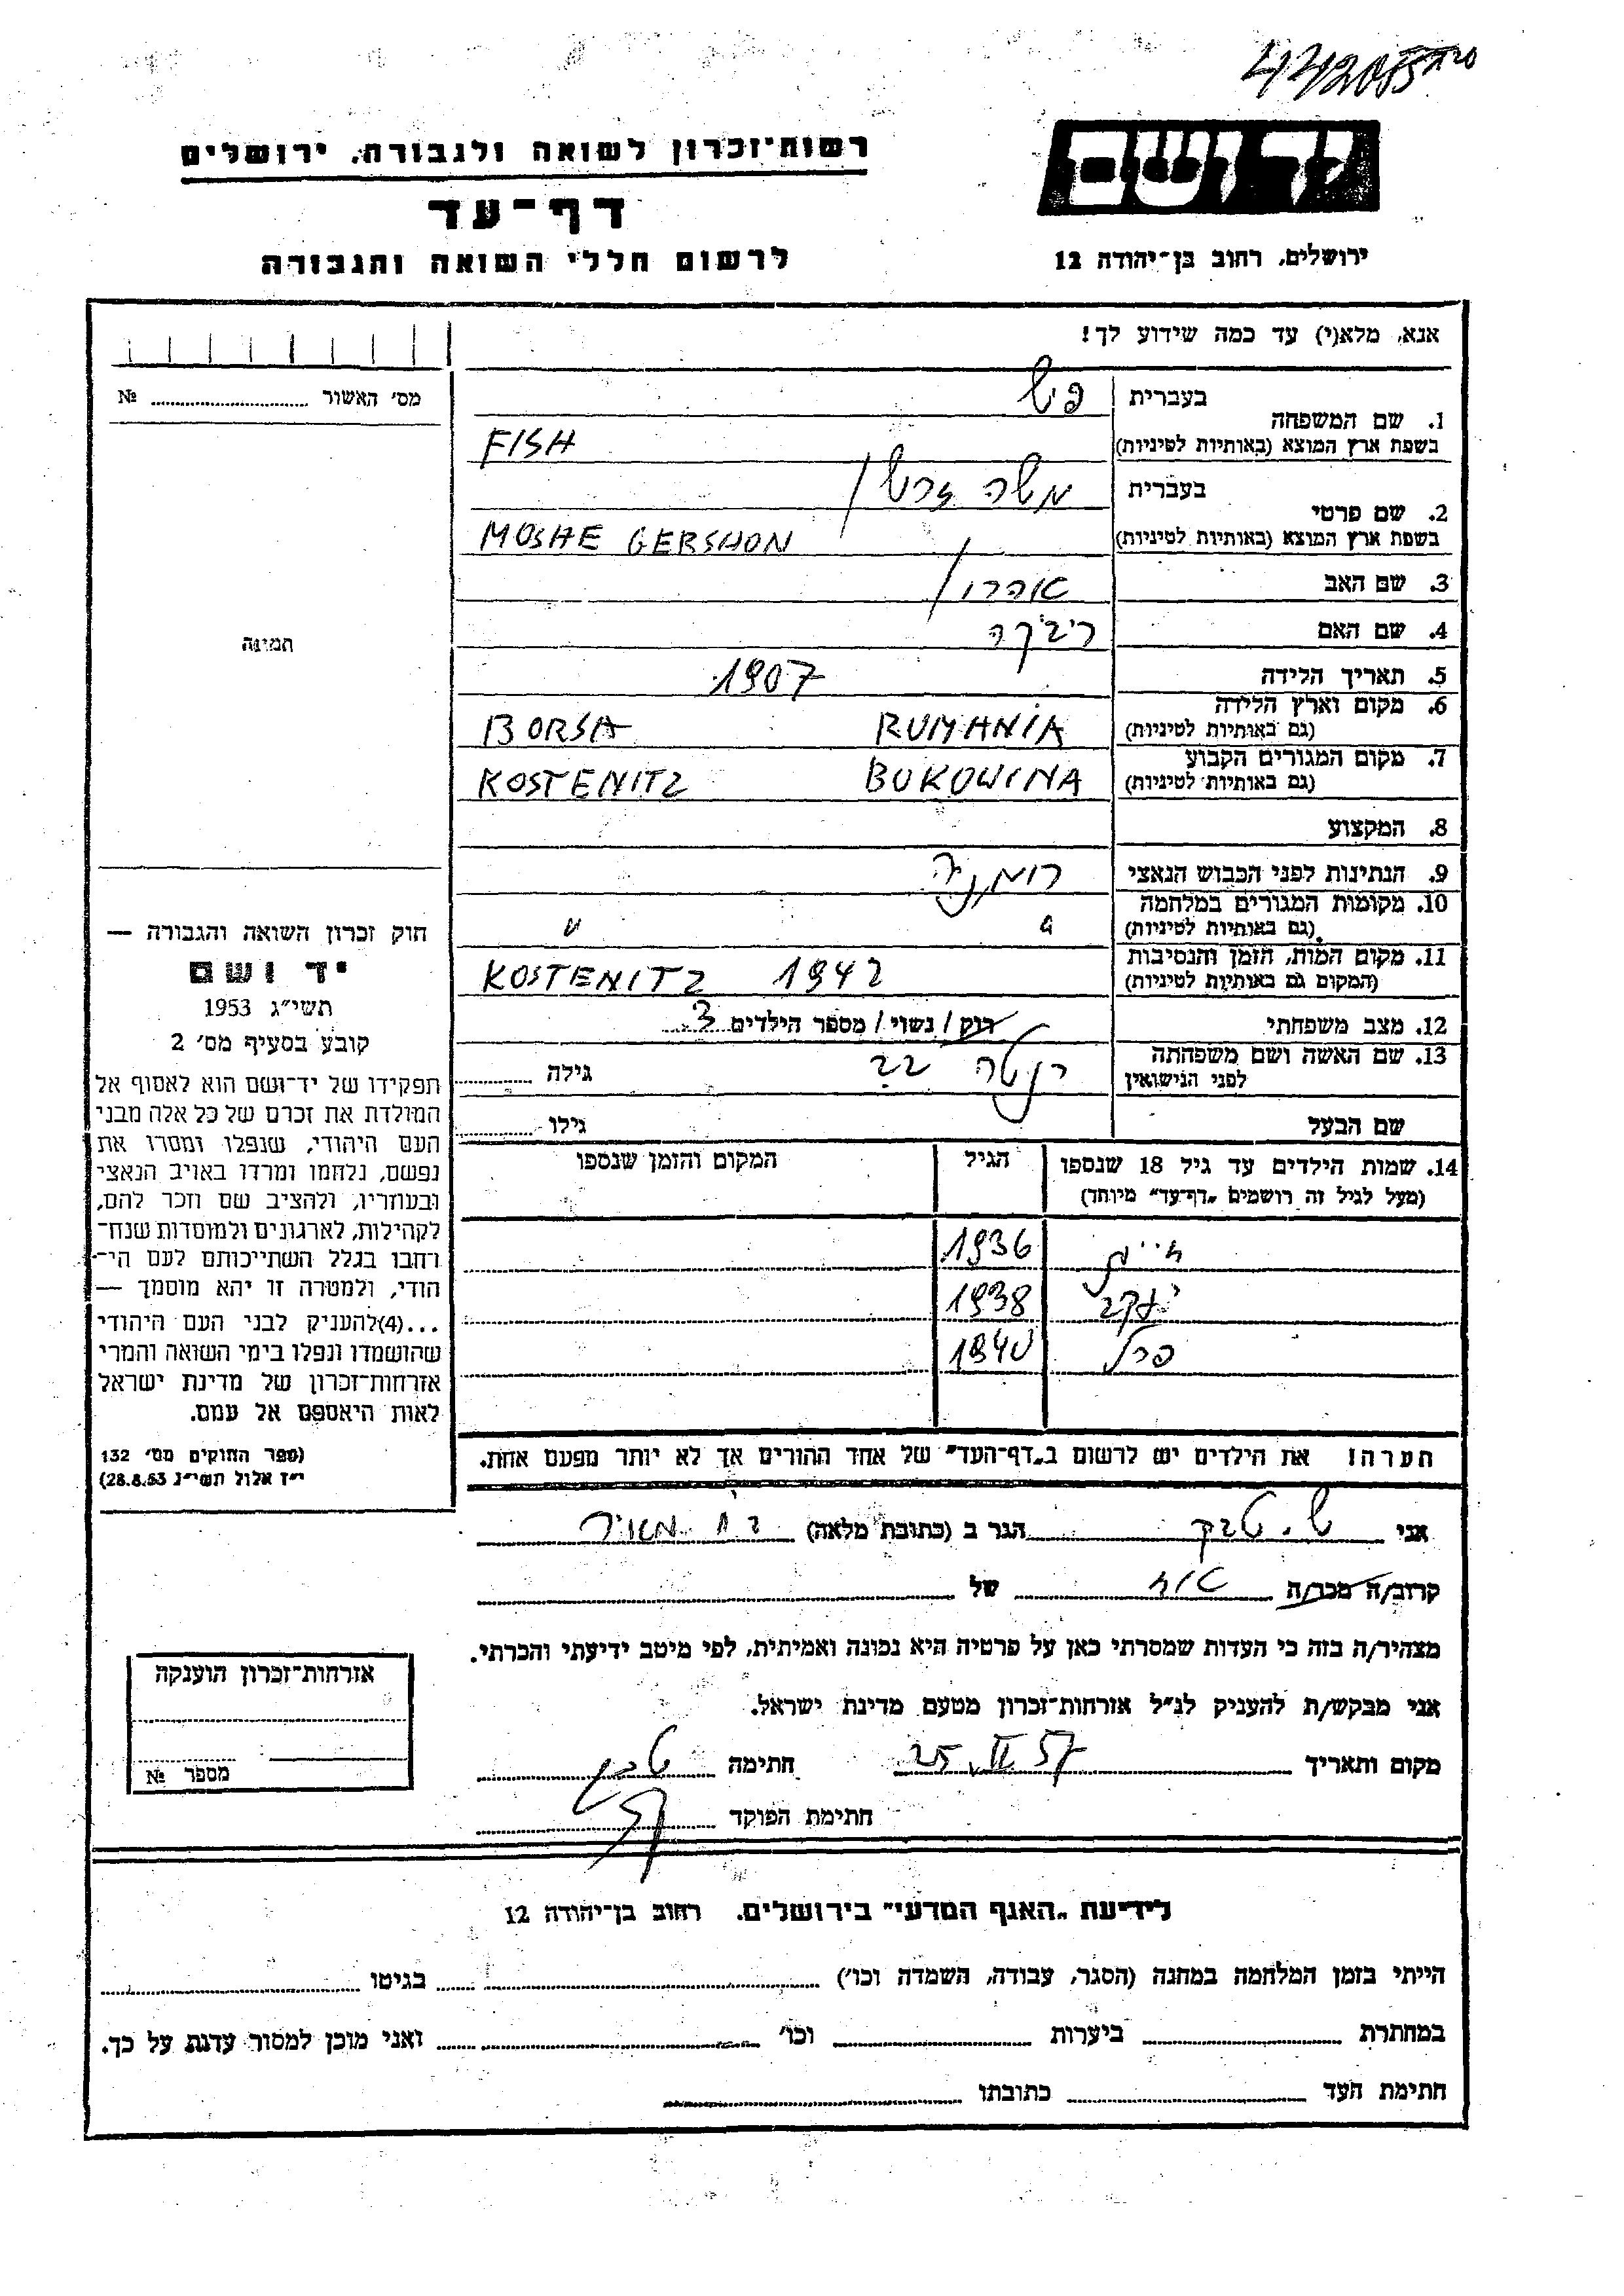 רשות־זכרון לשואה ולגבורה, ירושלים
דף־עד
לרשום חללי השואה והגבורה
יד ושם
ירושלים, רחוב בן־יהודה 12
אנא, מלא(י) עד כמה שידוע לך!
מס׳ האשור № 
1. שם המשפחה
בעברית פיש
בשפת ארץ המוצא (באותיות לטיניות) FISH
2. שם פרטי
בעברית משה גרשון
בשפת ארץ המוצא (באותיות לטיניות) MOSHE GERSHON
3. שם האב אהרון
4. שם האם ריבקה
5. תאריך הלידה 1907
6. מקום וארץ הלידה
(גם באותיות לטיניות) BORSA RUMANIA
7. מקום המגורים הקבוע
(גם באותיות לטיניות) KOSTENITZ BUKOWINA
8. המקצוע
9. הנתינות לפני הכבוש הנאצי רומניה
10. מקומות המגורים במלחמה
(גם באותיות לטיניות) " "
11. מקום המות, הזמן והנסיבות
(המקום גם באותיות לטיניות) KOSTENITZ 1942
12. מצב משפחתי רוק / נשוי / מספר הילדים 3
13. שם האשה ושם משפחתה
לפני הנישואין גילה
שם הבעל גילו
14. שמות הילדים עד גיל 18 שנספו
(מעל לגיל זה רושמים „דף־עד״ מיוחד)
הגיל
המקום והזמן שנספו
חיים 1936
יעקב 1938
פרל 1940
הערה! את הילדים יש לרשום ב„דף־העד״ של אחד ההורים אך לא יותר מפעם אחת.
תמונה
חוק זכרון השואה והגבורה —
יד ושם
תשי״ג 1953
קובע בסעיף מס׳ 2
תפקידו של יד־ושם הוא לאסוף אל
המולדת את זכרם של כל אלה מבני
העם היהודי, שנפלו ומסרו את
נפשם, נלחמו ומרדו באויב הנאצי
ובעוזריו, ולהציב שם וזכר להם,
לקהילות, לארגונים ולמוסדות שנח־
רחבו בגלל השתייכותם לעם הי־
הודי, ולמטרה זו יהא מוסמך —
...(4)להעניק לבני העם היהודי
שהושמדו ונפלו בימי השואה והמרי
אזרחות־זכרון של מדינת ישראל
לאות היאספם אל עמם.
(ספר החוקים מס׳ 132
י״ז אלול תשי״ג 28.8.53)
אני הגר ב (כתובת מלאה)
קרוב/ה מכר/ה אח של
מצהיר/ה בזה כי העדות שמסרתי כאן על פרטיה היא נכונה ואמיתית, לפי מיטב ידיעתי והכרתי.
אני מבקש/ת להעניק לנ״ל אזרחות־זכרון מטעם מדינת ישראל.
מקום ותאריך 25. II 57 חתימה
חתימת הפוקד
אזרחות־זכרון הוענקה
מספר №
לידיעת „האגף המדעי״ בירושלים, רחוב בן־יהודה 12
הייתי בזמן המלחמה במחנה (הסגר, עבודה, השמדה וכו׳) בגיטו
במחתרת ביערות וכו׳ ואני מוכן למסור עדות על כך.
חתימת העד כתובתו